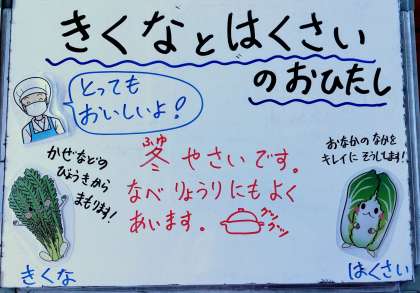 きくなとはくさい
のおひたし
とっても
おいしいよ!
かぜなどの
びょうきから
まもります!
ふゆ
冬やさいです。
なべりょうりにもよく
あいます。
グツ
グツ
おなかのなかを
キレイにそうじします!
きくな
はくさい